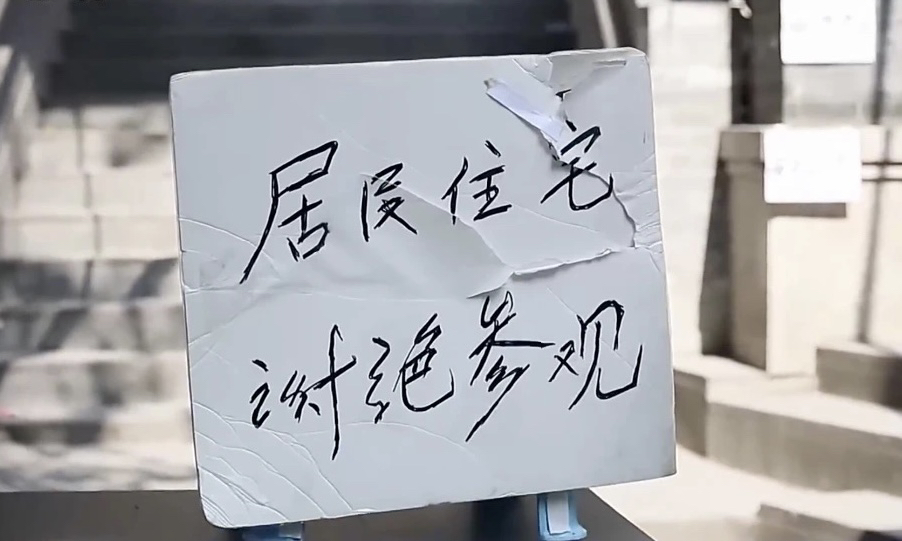 居民住宅
谢绝参观